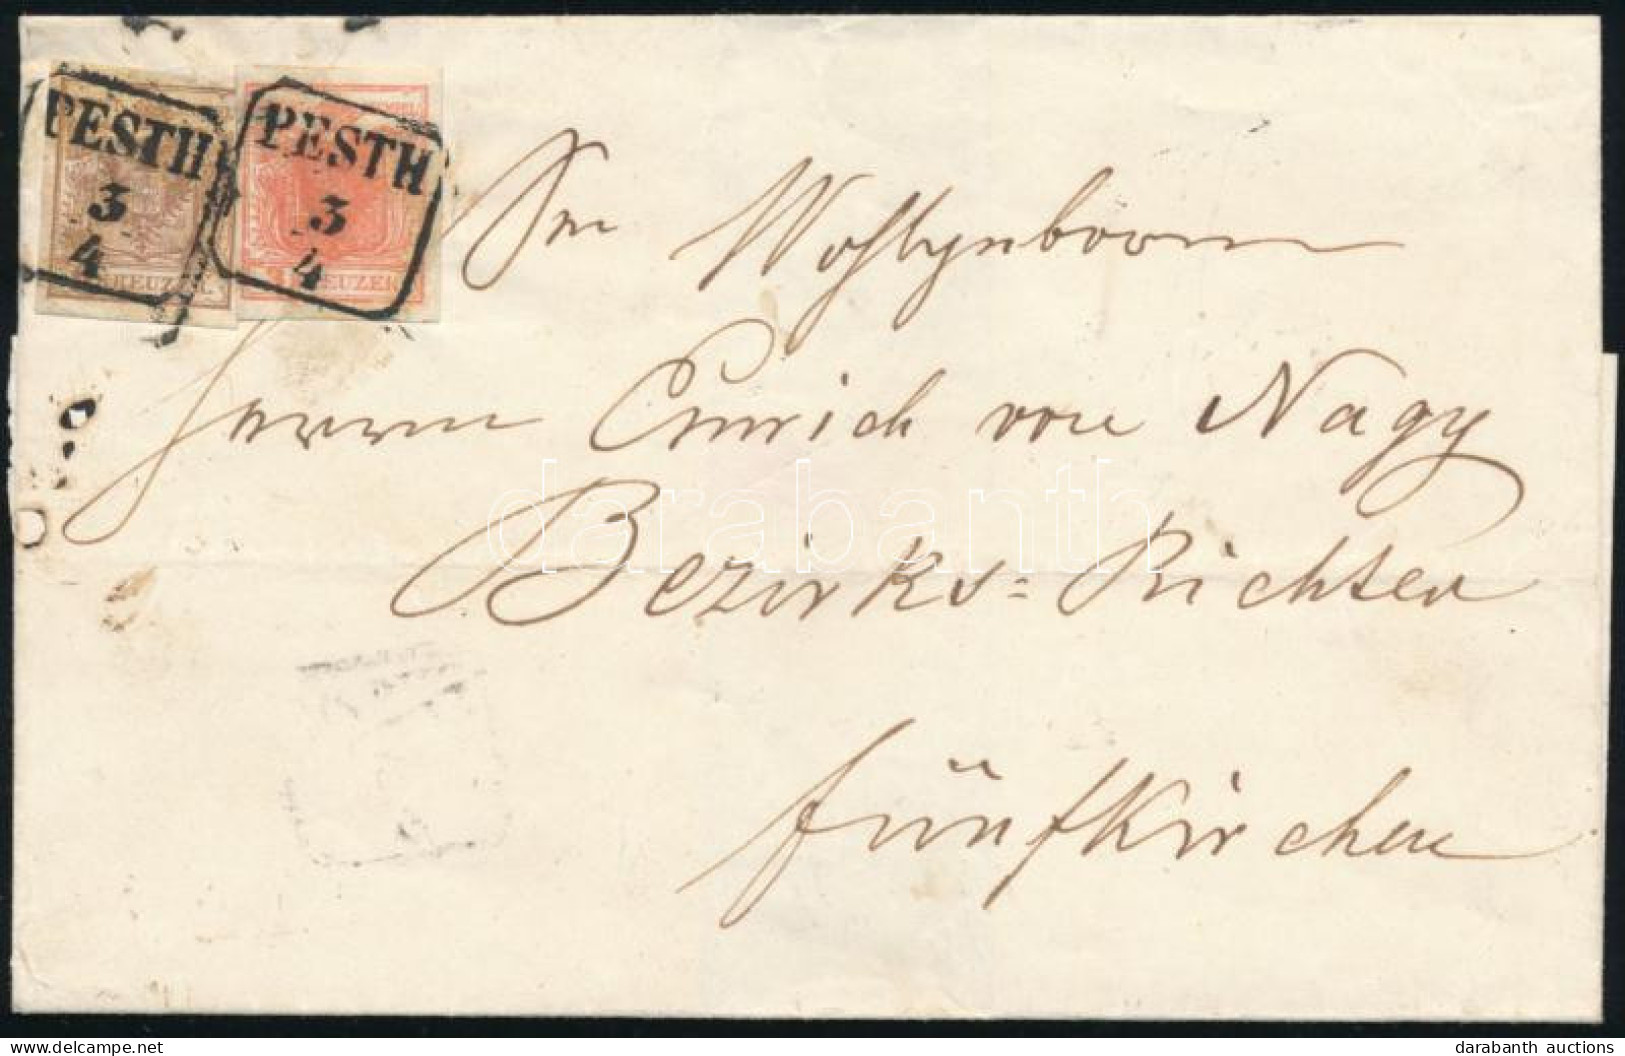 PESTH
3
4
KREUZER
PESTH
3
4
KREUZER
Sr Wohlgeboren
Herrn Emrich von Nagy
Bezirks=Richter
Fünfkirchen
darabanth
darabanth auctions